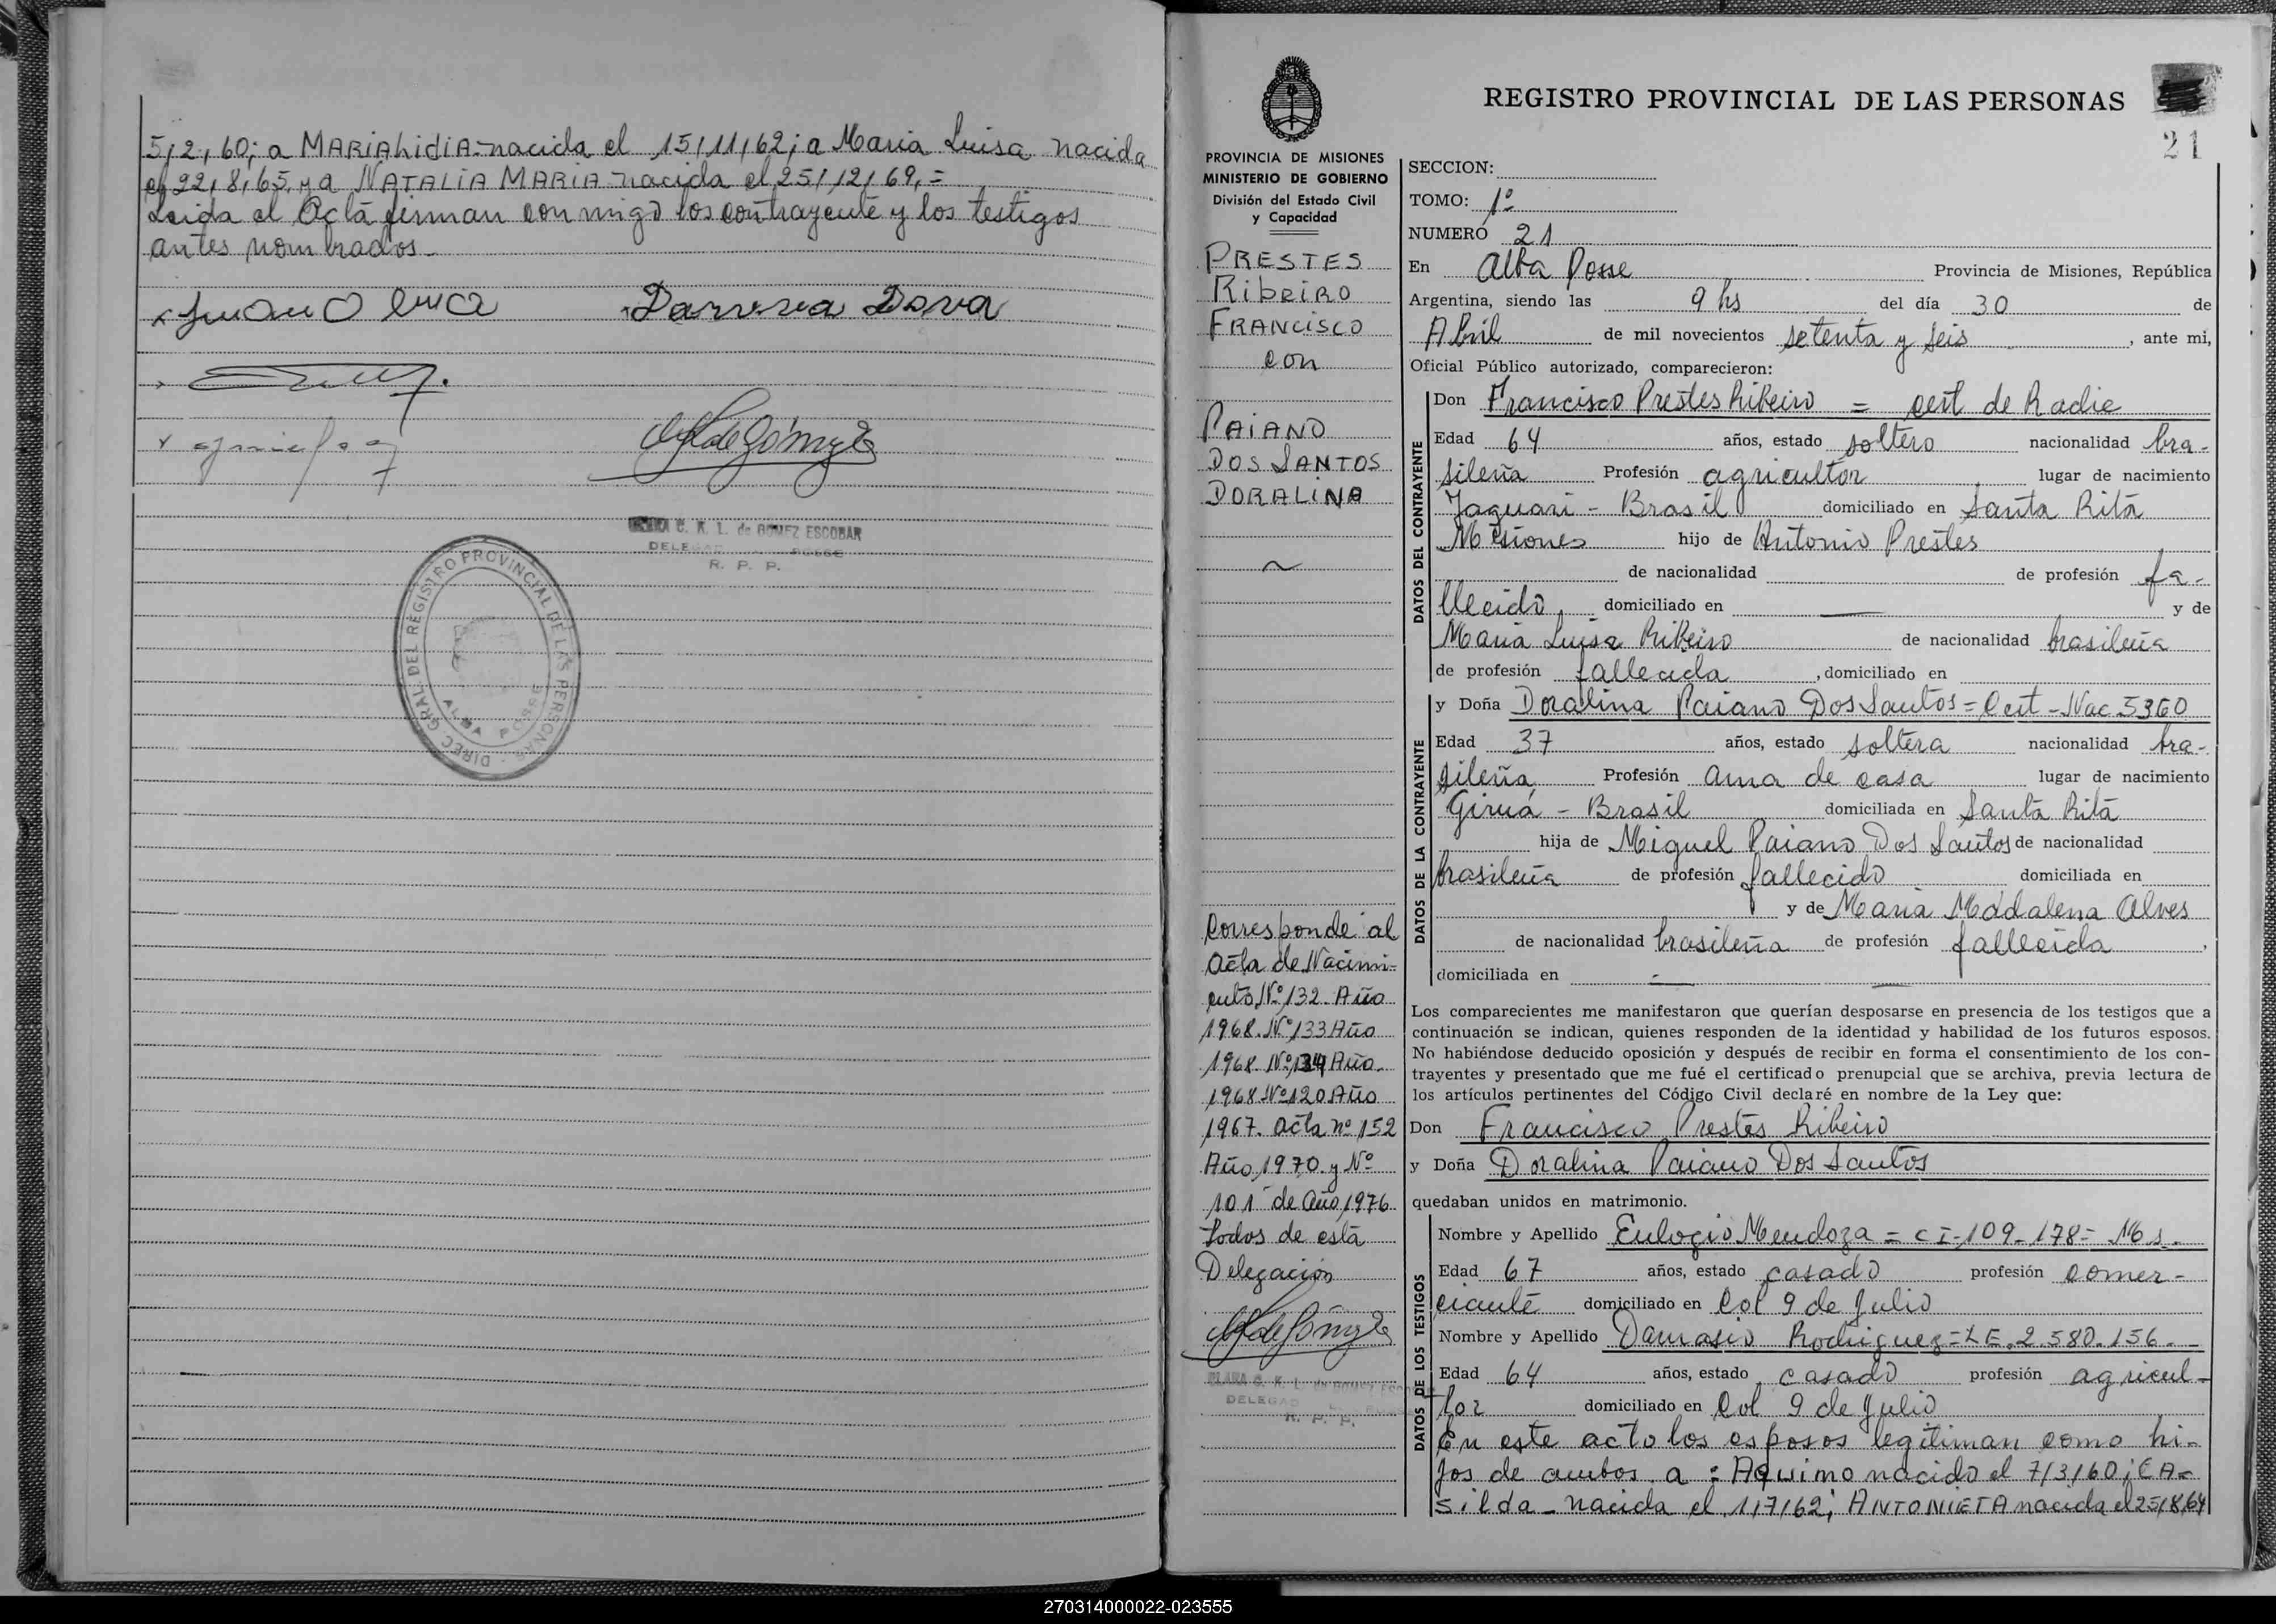 5/2/60; a MARIA LidIA nacida el 15/11/62; a Maria Luisa nacida
el 22/8/65 y a NATALIA MARIA nacida el 25/12/69,=
Leida el Acta firman conmigo los contrayente y los testigos
antes nombrados-
CLARA C. K. L. de GOMEZ ESCOBAR
DELEGAD POSSE
R. P. P.
DIREC. GRAL. DEL REGISTRO PROVINCIAL DE LAS PERSONAS
ALBA POSSE
REGISTRO PROVINCIAL DE LAS PERSONAS
21
PROVINCIA DE MISIONES
MINISTERIO DE GOBIERNO
División del Estado Civil
y Capacidad
PRESTES
RibeiRO
FRANCISCO
con
PAIANO
DOS SANTOS
DORALINA
Corresponde al
Acta de Nacimi-
ento Nº 132 Año
1968. Nº 133 Año
1968. Nº 134 Año
1968 Nº 120 Año
1967. Acta nº 152
Año 1970 y Nº
101 de Año 1976
todos de esta
Delegación
CLARA C. K. L. de GOMEZ ESCOBAR
DELEGAD POSSE
R. P. P.
SECCION:
TOMO: 1º
NUMERO 21
En Alba Posse Provincia de Misiones, República
Argentina, siendo las 9 hs del día 30 de
Abril de mil novecientos setenta y seis, ante mi,
Oficial Público autorizado, comparecieron:
DATOS DEL CONTRAYENTE
Don Francisco Prestes Ribeiro = cert de Radic
Edad 64 años, estado soltero nacionalidad bra-
sileña Profesión agricultor lugar de nacimiento
Jaguari - Brasil domiciliado en Santa Rita
Misiones hijo de Antonio Prestes
de nacionalidad de profesión fa-
llecido, domiciliado en y de
Maria Luisa Ribeiro de nacionalidad brasileña
de profesión fallecida, domiciliado en
DATOS DE LA CONTRAYENTE
y Doña Doralina Paiano Dos Santos = Cert - Nac 5360
Edad 37 años, estado soltera nacionalidad bra-
sileña Profesión ama de casa lugar de nacimiento
Giruá - Brasil domiciliada en Santa Rita
hija de Miguel Paiano Dos Santos de nacionalidad
brasileña de profesión fallecido domiciliada en
y de Maria Madalena Alves
de nacionalidad brasileña de profesión fallecida,
domiciliada en -
Los comparecientes me manifestaron que querían desposarse en presencia de los testigos que a
continuación se indican, quienes responden de la identidad y habilidad de los futuros esposos.
No habiéndose deducido oposición y después de recibir en forma el consentimiento de los con-
trayentes y presentado que me fué el certificado prenupcial que se archiva, previa lectura de
los artículos pertinentes del Código Civil declaré en nombre de la Ley que:
Don Francisco Prestes Ribeiro
y Doña Doralina Paiano Dos Santos
quedaban unidos en matrimonio.
DATOS DE LOS TESTIGOS
Nombre y Apellido Eulogio Mendoza = CI-109-178= Ms.
Edad 67 años, estado casado profesión comer-
ciante domiciliado en Col 9 de Julio
Nombre y Apellido Damasio Rodriguez = LE. 2.580.156.
Edad 64 años, estado casado profesión agricul-
tor domiciliado en Col 9 de Julio
En este acto los esposos legitiman como hi-
jos de ambos a: Aquimo nacido el 7/3/60; CA-
silda - nacida el 1/7/62; ANTONIETA nacida el 25/8/64
270314000022-023555